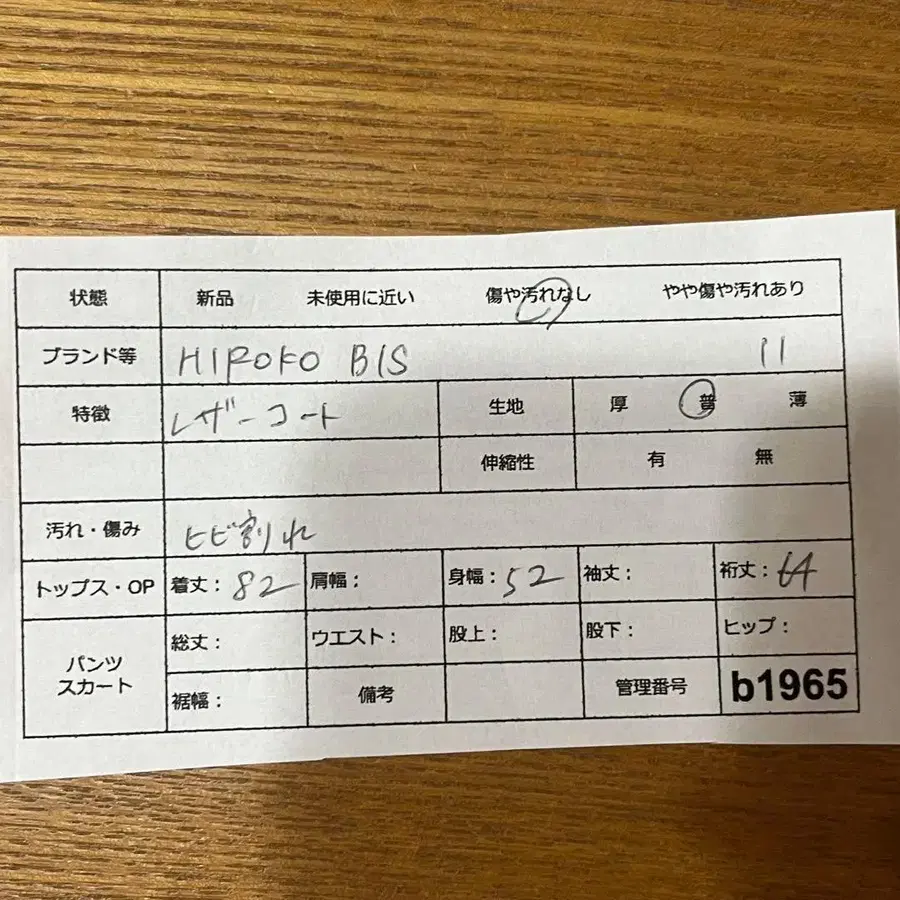 状態 新品 未使用に近い 傷や汚れなし やや傷や汚れあり
ブランド等 HIROKO BIS 11
特徴 レザーコート 生地 厚 普 薄
伸縮性 有 無
汚れ・傷み ヒビ割れ
トップス・OP 着丈:82 肩幅: 身幅:52 袖丈: 裄丈:64
パンツ スカート 総丈: ウエスト: 股上: 股下: ヒップ:
裾幅: 備考 管理番号 b1965